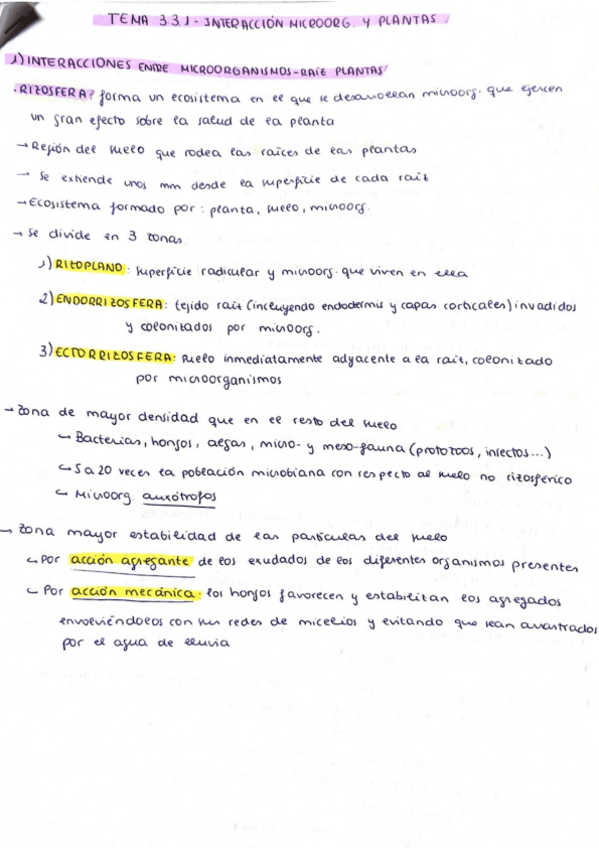 TEMA 3.3.1 - INTERACCIÓN MICROORG. Y PLANTAS
1) INTERACCIONES ENTRE MICROORGANISMOS-RAÍZ PLANTAS
· RIZOSFERA: forma un ecosistema en el que se desarrollan microorg. que ejercen
un gran efecto sobre la salud de la planta
→ Región del suelo que rodea las raíces de las plantas
→ Se extiende unos mm desde la superficie de cada raíz
→ Ecosistema formado por: planta, suelo, microorg.
→ Se divide en 3 zonas
1) RIZOPLANO: superficie radicular y microorg. que viven en ella
2) ENDORRIZOSFERA: tejido raíz (incluyendo endodermis y capas corticales) invadidos
y colonizados por microorg.
3) ECTORRIZOSFERA: suelo inmediatamente adyacente a la raíz, colonizado
por microorganismos
→ Zona de mayor densidad que en el resto del suelo
↳ Bacterias, hongos, algas, micro- y meso-fauna (protozoos, insectos...)
↳ 5 a 20 veces la población microbiana con respecto al suelo no rizosférico
↳ Microorg. auxótrofos
→ Zona mayor estabilidad de las partículas del suelo
↳ Por acción agregante de los exudados de los diferentes organismos presentes
↳ Por acción mecánica: los hongos favorecen y estabilizan los agregados
envolviéndolos con sus redes de micelios y evitando que sean arrastrados
por el agua de lluvia